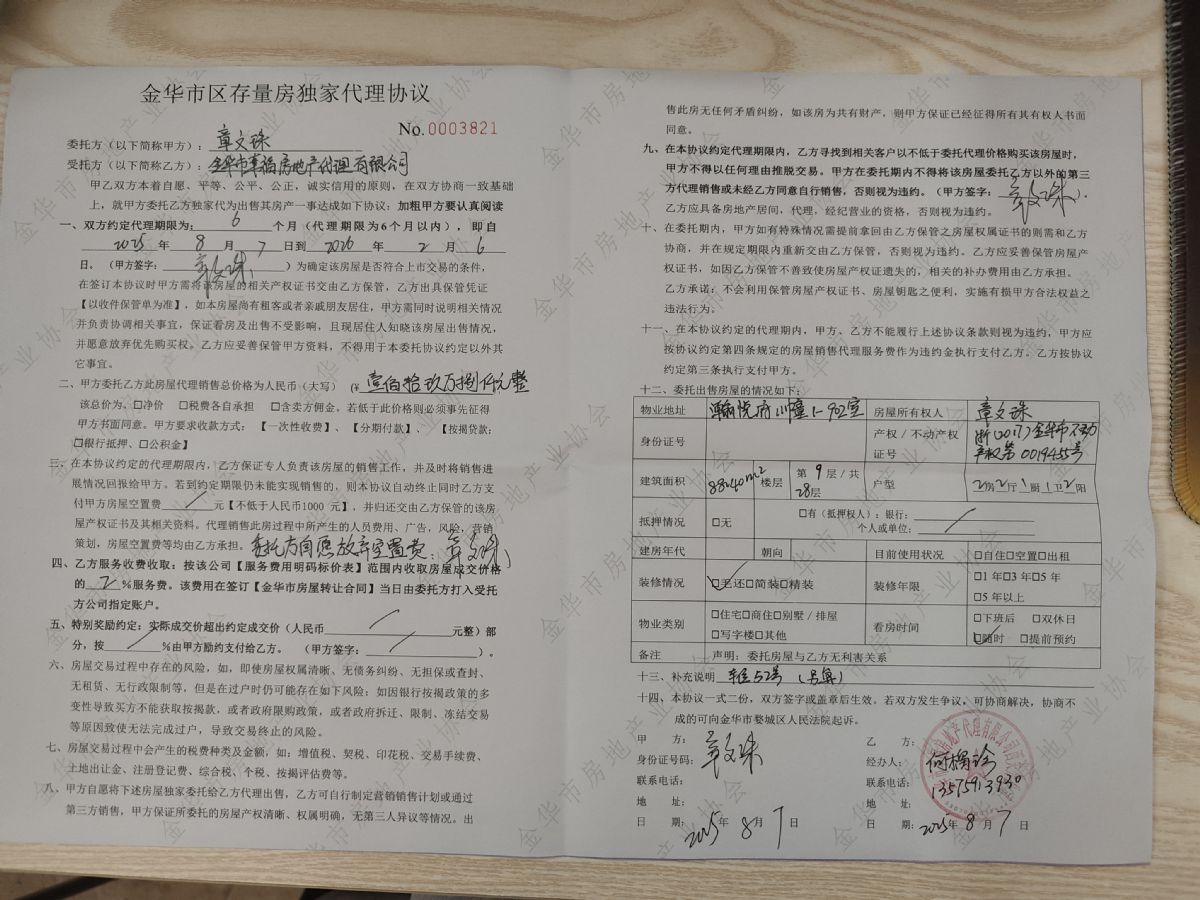 金华市区存量房独家代理协议
No.0003821
委托方（以下简称甲方）：章文珠
受托方（以下简称乙方）：金华市幸福房地产代理有限公司
甲乙双方本着自愿、平等、公平、公正，诚实信用的原则，在双方协商一致基础
上，就甲方委托乙方独家代为出售其房产一事达成如下协议：加租甲方要认真阅读
一、双方约定代理期限为：6个月（代理期限为6个月以内），即自
2025年8月7日到2026年2月6
日。（甲方签字：章文珠）为确定该房屋是否符合上市交易的条件，
在签订本协议时甲方需将该房屋的相关产权证书交由乙方保管，乙方出具保管凭证
【以收件保管单为准】，如本房屋尚有租客或者亲戚朋友居住，甲方需同时说明相关情况
并负责协调相关事宜，保证看房及出售不受影响，且现居住人知晓该房屋出售情况，
并愿意放弃优先购买权。乙方应妥善保管甲方资料，不得用于本委托协议约定以外其
它事宜。
二、甲方委托乙方此房屋代理销售总价格为人民币（大写）（¥壹佰拾玖万捌仟元整
该总价为、□净价 □税费各自承担 □含卖方佣金。若低于此价格则必须事先征得
甲方书面同意。甲方要求收款方式：【一次性收费】、【分期付款】、【按揭贷款：
□银行抵押、□公积金】
三、在本协议约定的代理期限内，乙方保证专人负责该房屋的销售工作，并及时将销售进
展情况回报给甲方。若到约定期限仍未能实现销售的，则本协议自动终止同时乙方支
付甲方房屋空置费 / 元【不低于人民币1000 元】，并归还交由乙方保管的该房
屋产权证书及其相关资料。代理销售此房过程中所产生的人员费用、广告，风险，营销
策划，房屋空置费等均由乙方承担。委托方自愿放弃空置费：章文珠
四、乙方服务收费收取：按该公司【服务费用明码标价表】范围内收取房屋成交价格
的 2 %服务费。该费用在签订【金华市房屋转让合同】当日由委托方打入受托
方公司指定账户。
五、特别奖励约定：实际成交价超出约定成交价（人民币 / 元整）部
分，按 / %由甲方励约支付给乙方。（甲方签字： / ）。
六、房屋交易过程中存在的风险，如，即使房屋权属清晰、无债务纠纷、无担保或查封、
无租赁、无行政限制等，但是在过户时仍可能存在如下风险：如因银行按揭政策的多
变性导致买方不能获取按揭款，或者政府限购政策，或者政府拆迁、限制、冻结交易
等原因致使无法完成过户，导致交易终止的风险。
七、房屋交易过程中会产生的税费种类及金额，如：增值税、契税、印花税、交易手续费、
土地出让金、注册登记费、综合税、个税、按揭评估费等。
八、甲方自愿将下述房屋独家委托给乙方代理出售，乙方可自行制定营销销售计划或通过
第三方销售，甲方保证所委托的房屋产权清晰、权属明确，无第三人异议等情况。出
售此房无任何矛盾纠纷，如该房为共有财产，则甲方保证已经征得所有其有权人书面
同意。
九、在本协议约定代理期限内，乙方寻找到相关客户以不低于委托代理价格购买该房屋时，
甲方不得以任何理由推脱交易。甲方在委托期内不得将该房屋委托乙方以外的第三
方代理销售或未经乙方同意自行销售，否则视为违约。（甲方签字：章文珠）.
乙方应具备房地产居间，代理，经纪营业的资格，否则视为违约。
十、在委托期内，甲方如有特殊情况需提前拿回由乙方保管之房屋权属证书的则需和乙方
协商，并在规定期限内重新交由乙方保管，否则视为违约。乙方应妥善保管房屋产
权证书，如因乙方保管不善致使房屋产权证遗失的，相关的补办费用由乙方承担。
乙方承诺：不会利用保管房屋产权证书、房屋钥匙之便利，实施有损甲方合法权益之
违法行为。
十一、在本协议约定的代理期内，甲方、乙方不能履行上述协议条款则视为违约，甲方应
按协议约定第四条规定的房屋销售代理服务费作为违约金执行支付乙方。乙方按协议
约定第三条执行支付甲方。
十二、委托出售房屋的情况如下：
物业地址 悦府 幢1-902室 房屋所有权人 章文珠
身份证号 产权／不动产权证号 浙(2017)金华市不动产权第0019455号
建筑面积 88.40m² 楼层 第9层／共28层 户型 2房2厅1厨1卫2阳
抵押情况 □无 □有（抵押权人）：银行：
个人或单位： /
建房年代 朝向 目前使用状况 □自住□空置□出租
装修情况 ☑毛还□简装□精装 装修年限 □1年□3年□5年
□5年以上
物业类别 □住宅□商住□别墅／排屋
□写字楼□其他
看房时间 □下班后 □双休日
☑随时 □提前预约
备注 声明：委托房屋与乙方无利害关系
十三、补充说明 车位52号（另算）
十四、本协议一式二份，双方签字或盖章后生效。若双方发生争议，可协商解决，协商不
成的可向金华市婺城区人民法院起诉。
甲 方：章文珠
身份证号码：
联系电话：
地 址：
日 期：2025年8月7日
乙 方：
经办人：何梅珍
联系电话：13575913930
地 址：
日 期：2025年8月7日
金华市房地产业协会